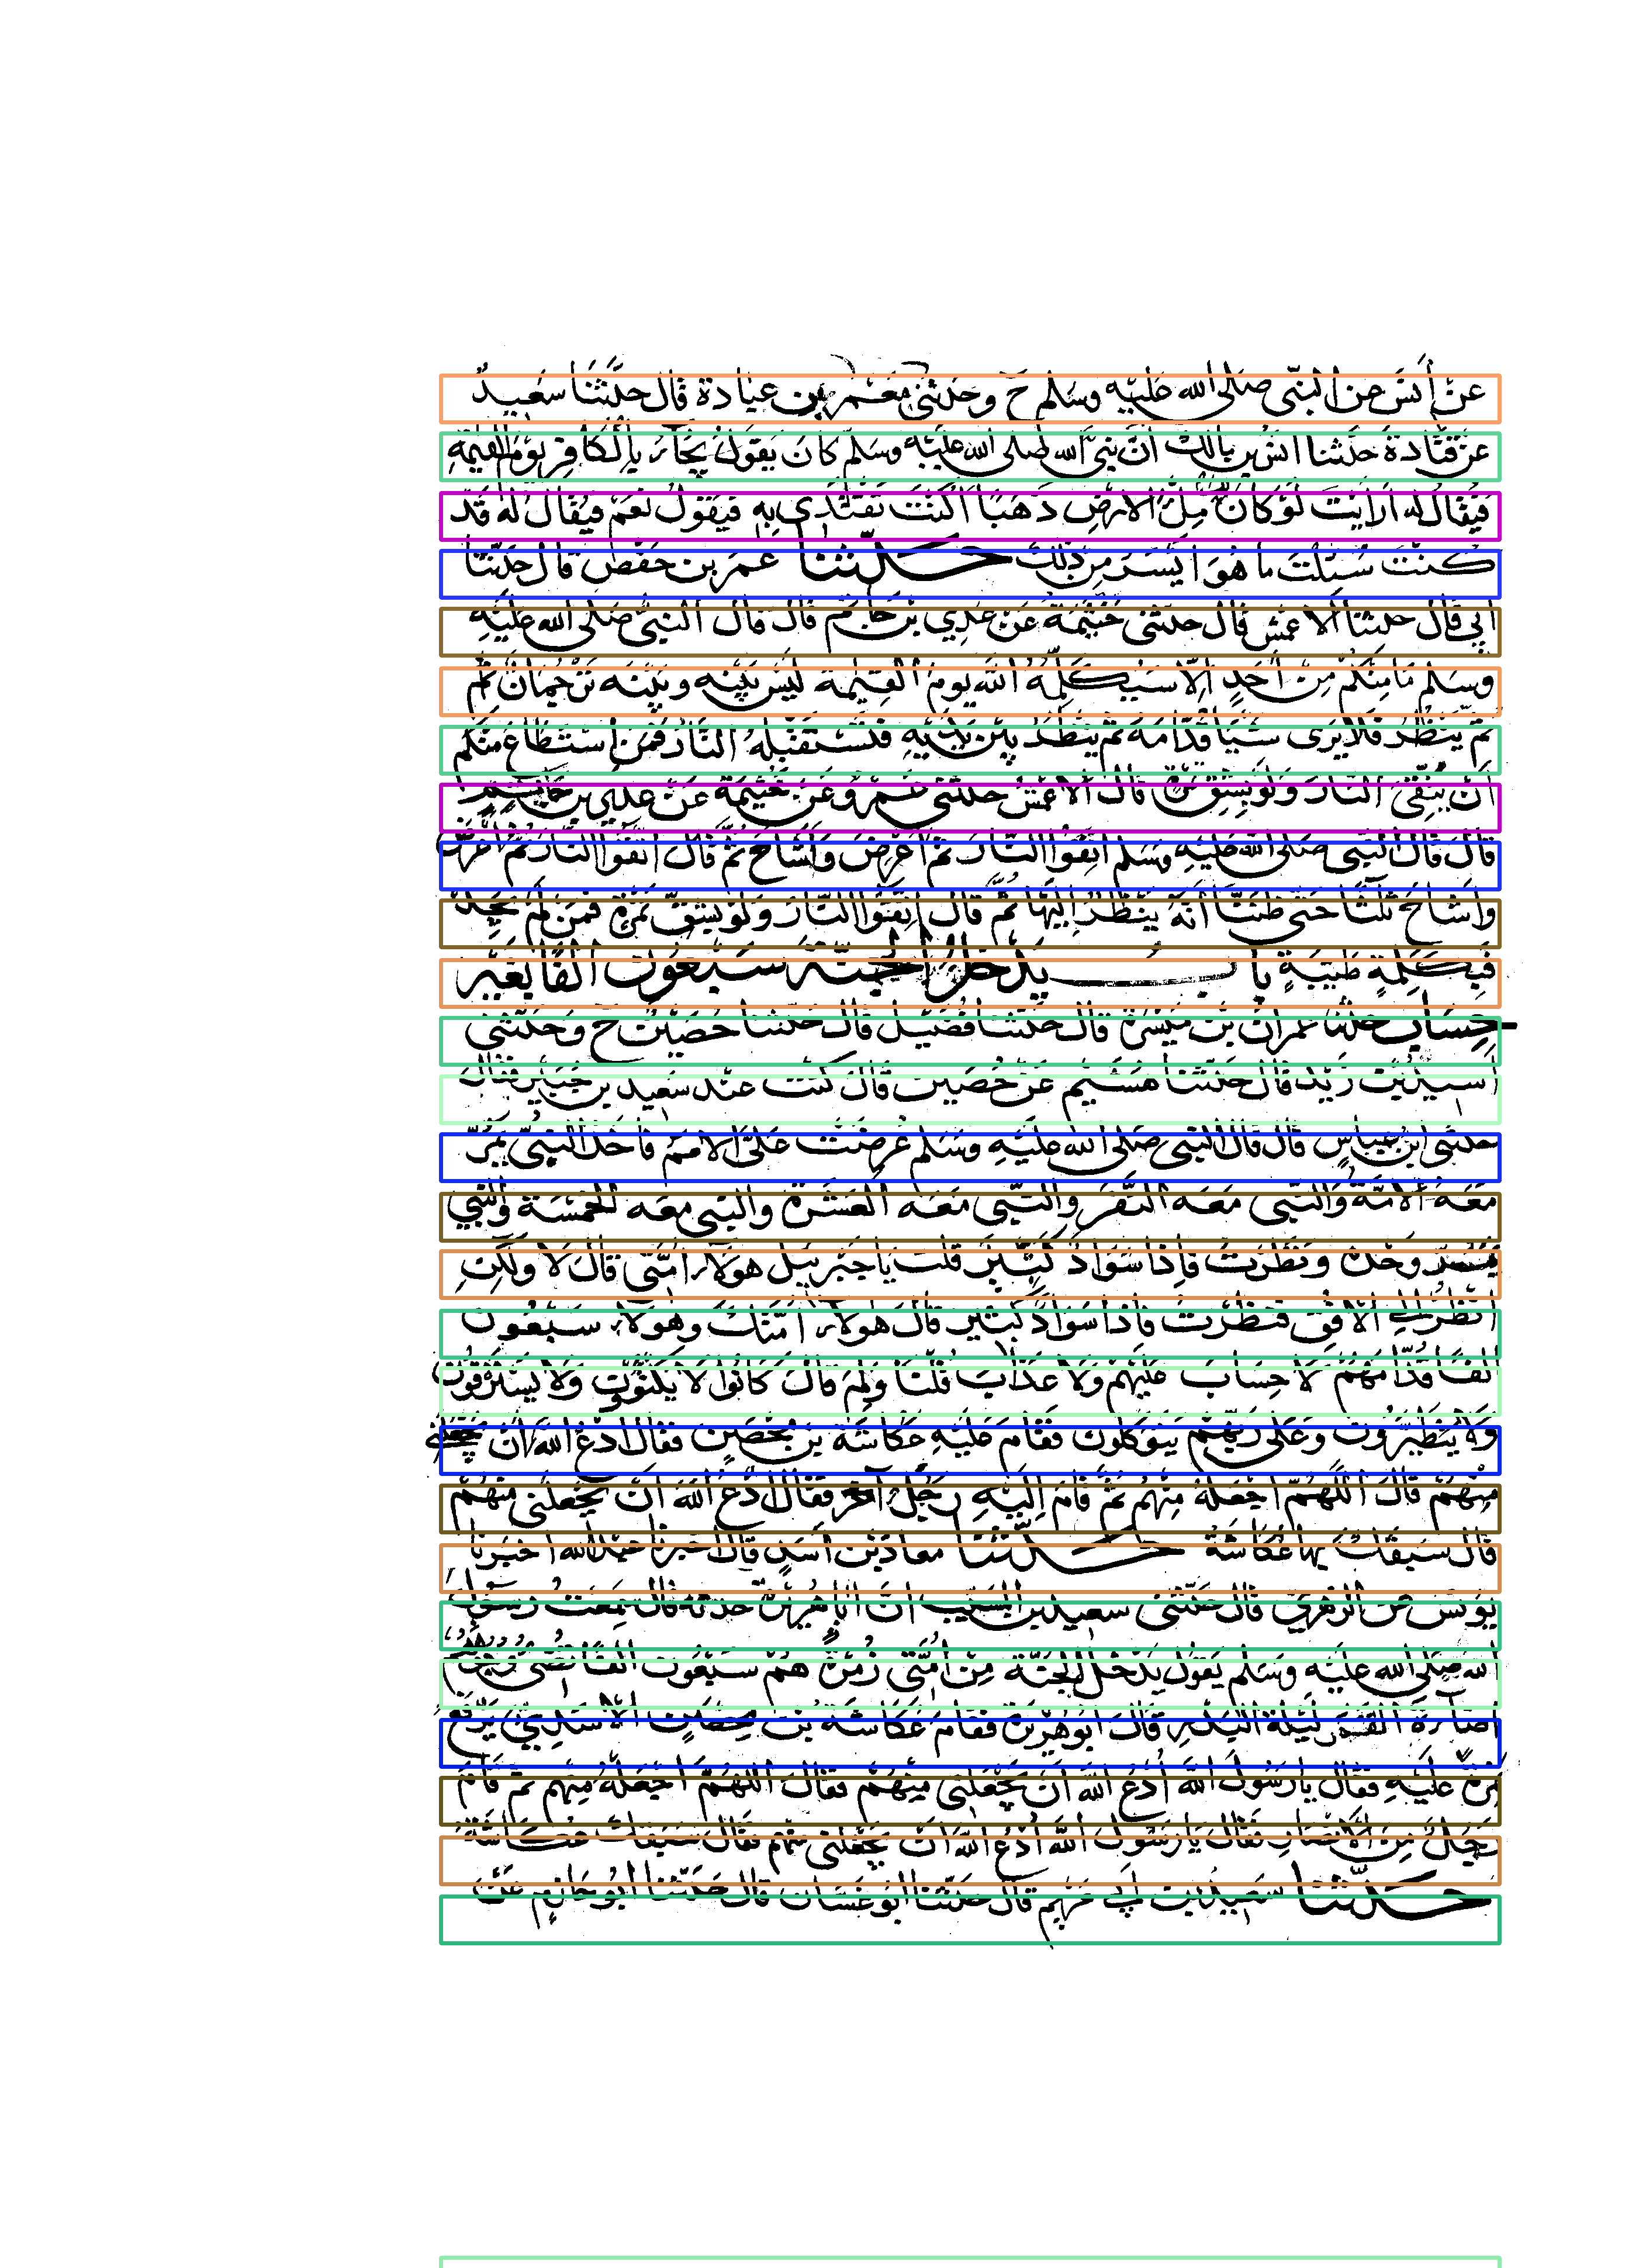 عَنْ أَنَسٍ عن النبي صلى الله عليه وسلم ح وحدثني معمر بن عبادة قال حدثنا سعيد
عن قتادة حدثنا انس بن مالك أن نبي الله صلى الله عليه وسلم كان يقول يجاء بالكافر يوم القيمة
فيقال له ارايت لو كان لك ملء الارض ذهبا اكنت تفتدي به فيقول نعم فيقال له قد
كنت سئلت ما هو ايسر من ذلك حدثنا عمر بن حفص قال حدثنا
ابي قال حدثنا الاعمش قال حدثني خيثمة عن عدي بن حاتم قال قال النبي صلى الله عليه
وسلم ما منكم من أحد الا سيكلمه الله يوم القيمة ليس بينه وبينه ترجمان ثم
ثم ينظر فلا يرى شيئا قدامه ثم ينظر بين يديه فتستقبله النار فمن استطاع منكم
أن يتقي النار ولو بشق تمرة قال الاعمش حدثني عمرو عن خيثمة عن عدي بن حاتم
قال قال النبي صلى الله عليه وسلم اتقوا النار ثم أعرض وأشاح ثم قال اتقوا النار ثم أعرض
واشاح ثلثا حتى ظننا أنه ينظر إليها ثم قال اتقوا النار ولو بشق تمرة فمن لم يجد
فبكلمة طيبة باب يدخل الجنة سبعون الفا بغير
حساب حدثنا عمران بن ميسرة قال حدثنا فضيل قال حدثنا حصين ح وحدثني
اسيد بن زيد قال حدثنا هشيم عن حصين قال كنت عند سعيد بن جبير فقال
حدثني ابن عباس قال قال النبي صلى الله عليه وسلم عرضت على الامم فاخذ النبي يمر
معه الامة والنبي معه النفر والنبي معه العشرة والنبي معه الخمسة والنبي
يمر وحده ونظرت فاذا سواد كثير قلت يا جبريل هولاء امتي قال لا ولكن
انظر الى الافق فنظرت فاذا سواد كثير قال هولاء امتك وهولاء سبعون
الفا قدامهم لا حساب عليهم ولا عذاب قلت ولم قال كانوا لا يكتوون ولا يسترقون
ولا يتطيرون وعلى ربهم يتوكلون فقام عليه عكاشة بن محصن فقال ادع الله ان يجعلني
منهم قال اللهم اجعله منهم ثم قام إليه رجل آخر فقال ادع الله ان يجعلني منهم
قال سبقك بها عكاشة حدثنا معاذ بن اسد قال اخبرنا عبد الله اخبرنا
يونس عن الزهري قال حدثني سعيد بن المسيب ان ابا هريرة حدثه قال سمعت رسول
الله صلى الله عليه وسلم يقول يدخل الجنة من امتي زمرة هم سبعون الفا تضيء وجوههم
اضاءة القمر ليلة البدر قال ابو هريرة فقام عكاشة بن محصن الاسدي يرفع
نمرة عليه فقال يا رسول الله أدع الله أن يجعلني منهم فقال اللهم اجعله منهم ثم قام
رجل من الانصار فقال يا رسول الله أدع الله ان يجعلني منهم فقال سبقك عكاشة
حدثنا سعيد بن ابي مريم قال حدثنا ابو غسان قال حدثنا ابو حازم عن